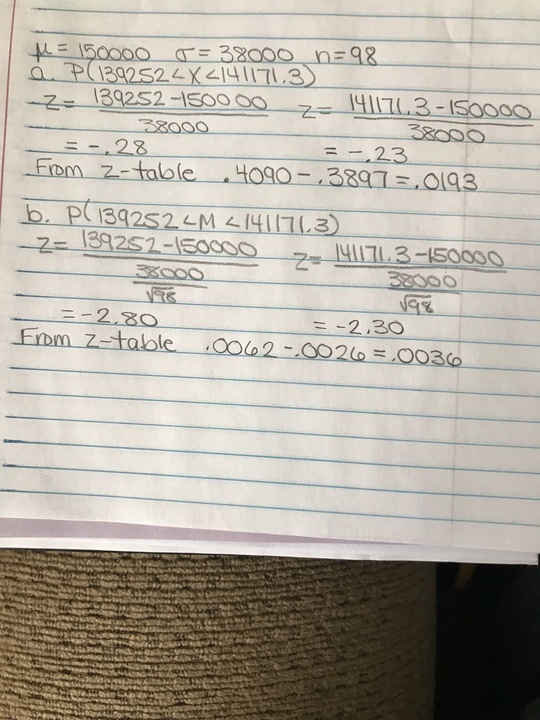 μ = 150000 σ = 38000 n = 98
a. P(139252 < X < 141171.3)
z = 139252 - 150000 / 38000 z = 141171.3 - 150000 / 38000
= -.28 = -.23
From z-table .4090 - .3897 = .0193
b. P(139252 < M < 141171.3)
z = 139252 - 150000 / 38000 / √98 z = 141171.3 - 150000 / 38000 / √98
= -2.80 = -2.30
From z-table .0062 - .0026 = .0036